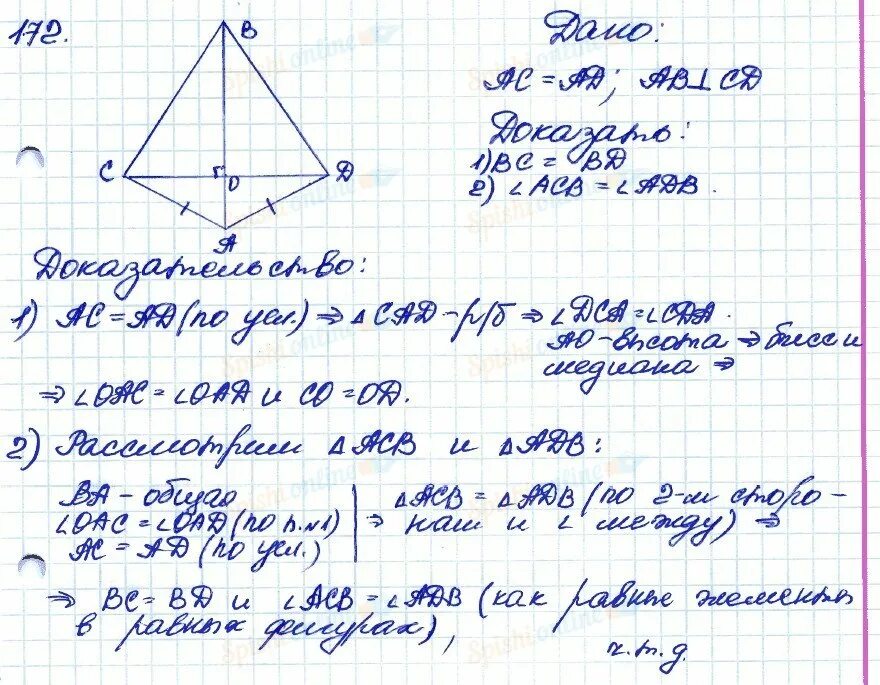 172.
B
C
D
O
A
Дано:
AC = AD; AB⊥CD
Доказать:
1) BC = BD
2) ∠ACB = ∠ADB.
Доказательство:
1) AC = AD (по усл.) ⇒ △CAD - р/б ⇒ ∠DCA = ∠CDA.
AO - высота ⇒ бисс и
медиана ⇒
⇒ ∠OAC = ∠OAD и CO = OD.
2) Рассмотрим △ACB и △ADB:
BA - общая
∠OAC = ∠OAD (по п.№1)
AC = AD (по усл.)
⇒ △ACB = △ADB (по 2-м сторо-
нам и ∠ между) ⇒
⇒ BC = BD и ∠ACB = ∠ADB (как равные элементы
в равных фигурах),
ч.т.д.
Spishi online